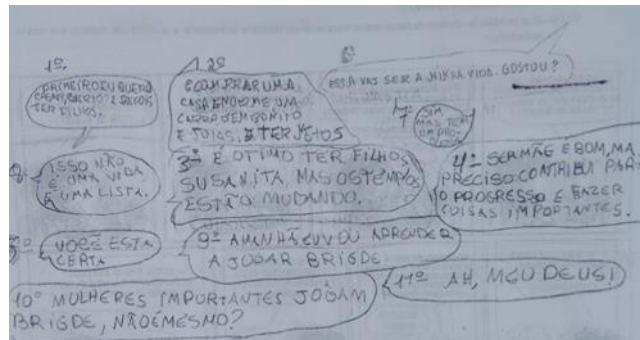 1º
PRIMEIRO EU QUERO
TER FILHOS.
1.2º
E COMPRAR UMA
CASA ENORME UM
CARRO BEM BONITO
E JOIAS, E TER NETOS
6º
ESSA VAI SER A MINHA VIDA. GOSTOU?
7º
SIM
MAS TEM
UM PRO
BLEMA
8º
ISSO NÃO
É UMA VIDA
É UMA LISTA.
3º É OTIMO TER FILHOS
SUSANITA, MAS OS TEMPOS
ESTÃO MUDANDO.
4º SER MÃE E BOM, MA
PRECISO CONTRIBUI PAR
O PROGRESSO E FAZER
COISAS IMPORTANTES.
5º
VOCÊ ESTA
CERTA
9º AMANHÃ EU VOU APRENDER
A JOGAR BRIGDE
10º MULHERES IMPORTANTES JOGAM
BRIGDE, NÃO É MESMO?
11º AH, MEU DEUS!